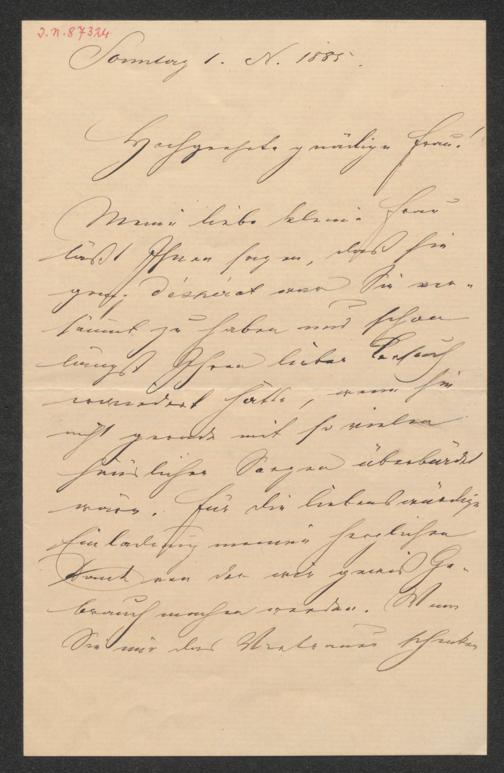 J.N. 87324
Sonntag 1. N. 1885.
Hochgeehrte gnädige Frau!
Meine liebe kleine Frau
läßt Ihnen sagen, daß sie
ganz désperat war Sie ver-
säumt zu haben und schon
längst Ihren lieben Besuch
erwiedert hätte, wenn sie
nicht gerade mit so vielen
häuslichen Sorgen überbürdet
wäre. Für die liebenswürdige
Einladung meinen herzlichen
Dank von der wir gewiß Ge-
brauch machen werden. Wenn
Sie mir das Vertrauen schenken